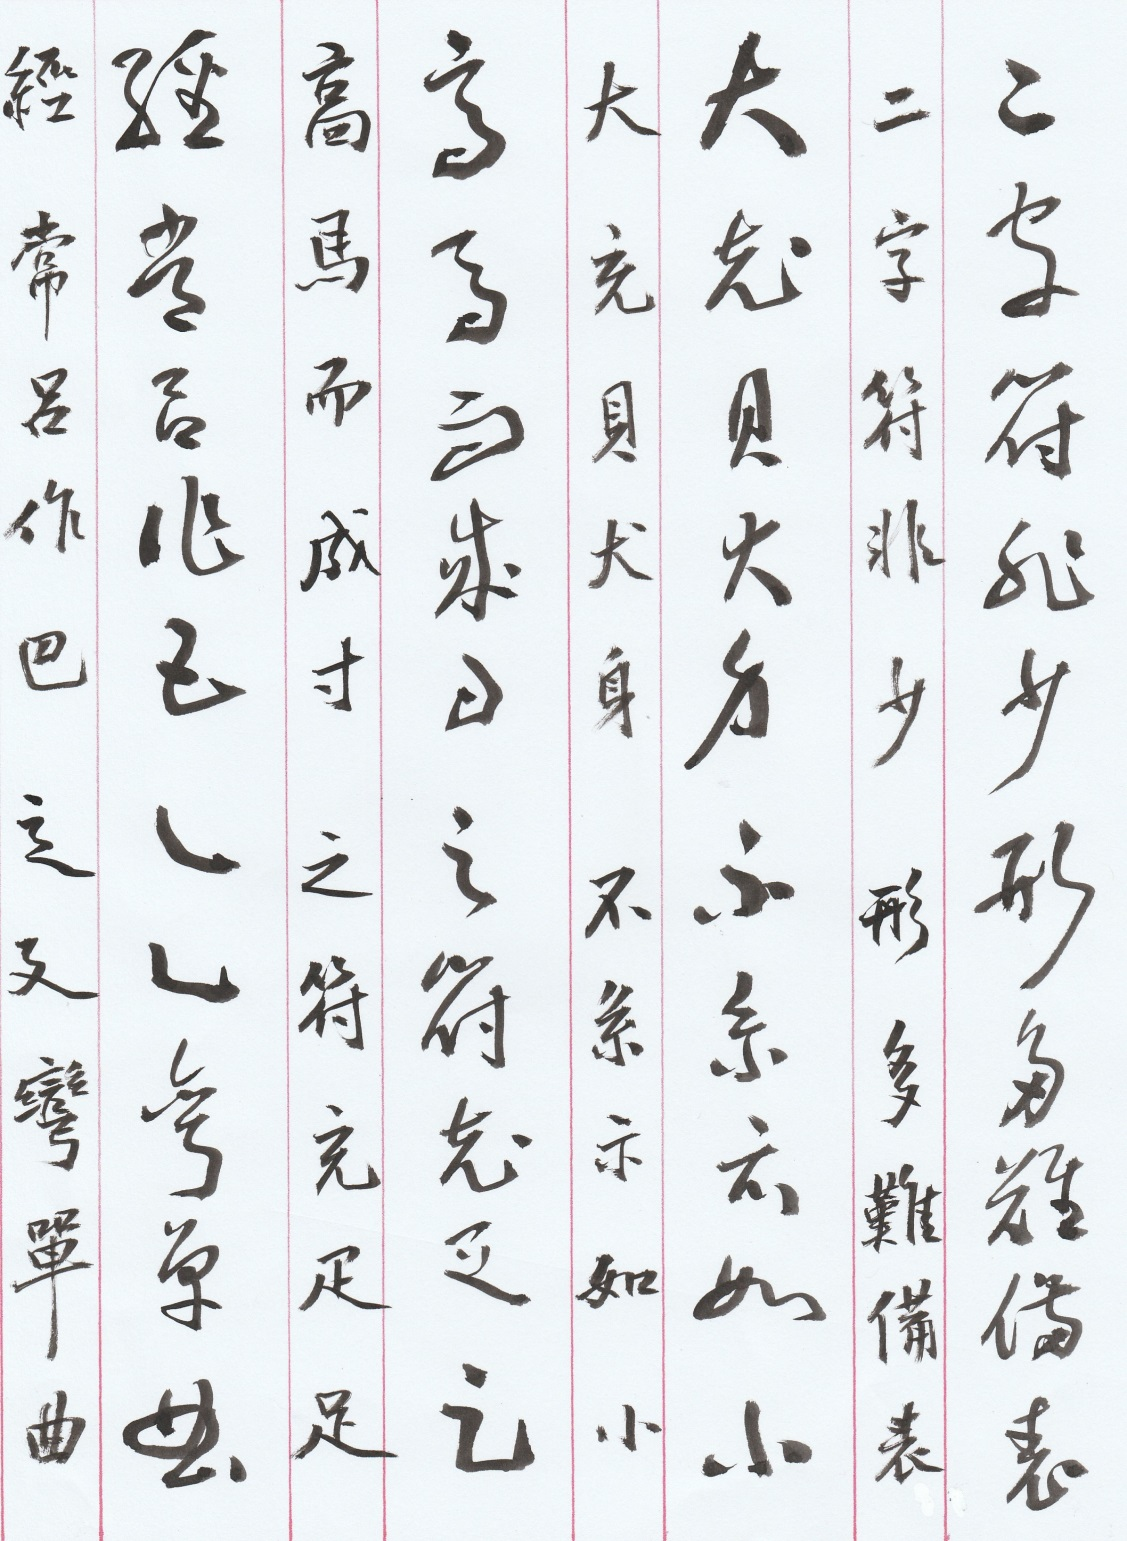 二字符非少形多難備表
二字符非少形多難備表
大充貝犬身不系示如小
大充貝犬身不系示如小
高馬而成寸之符充疋足
高馬而成寸之符充疋足
經常呂作巴辶廴彎單曲
經常呂作巴辶廴彎單曲